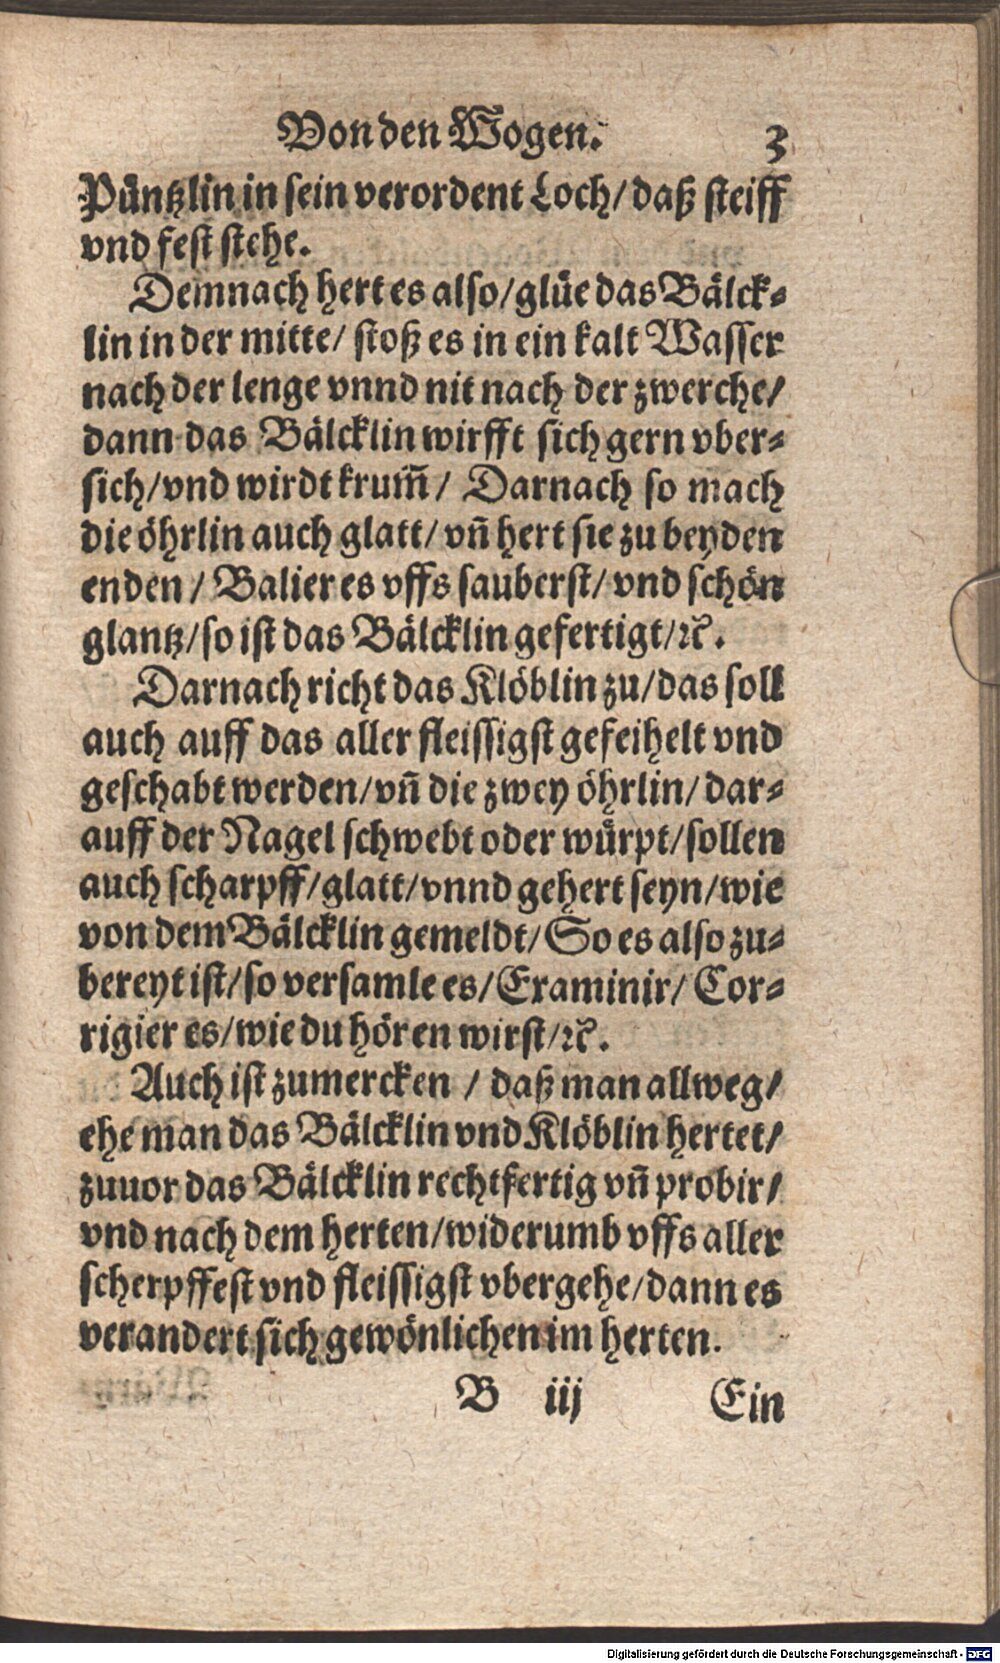 Von den Wogen. 3
Püntzlin in sein verordent Loch/ daß steiff
vnd fest stehe.
Demnach hert es also/ glüe das Bälck⸗
lin in der mitte/ stoß es in ein kalt Wasser
nach der lenge vnnd nit nach der zwerche/
dann das Bälcklin wirfft sich gern vber⸗
sich/ vnd wirdt krum̃/ Darnach so mach
die öhrlin auch glatt/ vñ hert sie zu beyden
enden/ Balier es vffs sauberst/ vnd schön
glantz/ so ist das Bälcklin gefertigt/ ꝛc̃.
Darnach richt das Klöblin zu/ das soll
auch auff das aller fleissigst gefeihelt vnd
geschabt werden/ vñ die zwey öhrlin/ dar⸗
auff der Nagel schwebt oder würpt/ sollen
auch scharpff/ glatt/ vnnd gehert seyn/ wie
von dem Bälcklin gemeldt/ So es also zu⸗
bereyt ist/ so versamle es/ Examinir/ Cor⸗
rigier es/ wie du hören wirst/ ꝛc̃.
Auch ist zumercken/ daß man allweg/
ehe man das Bälcklin vnd Klöblin hertet/
zuuor das Bälcklin rechtfertig vñ probir/
vnd nach dem herten/ widerumb vffs aller
scherpffest vnd fleissigst vbergehe/ dann es
verandert sich gewönlichen im herten.
B iij Ein
Digitalisierung gefördert durch die Deutsche Forschungsgemeinschaft - DFG